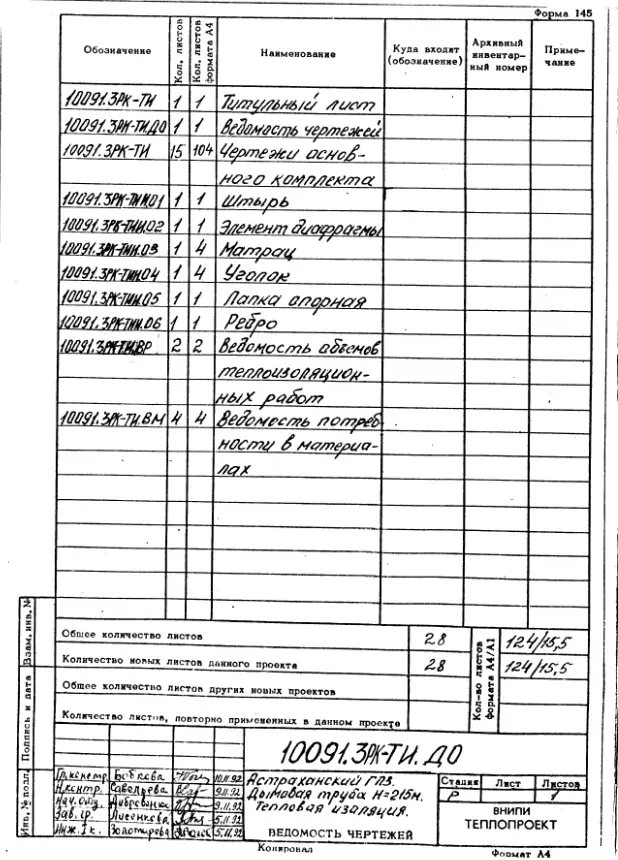 Форма 145
Обозначение Кол. листов Кол. листов формата А4 Наименование Куда входит (обозначение) Архивный инвентарный номер Примечание
10091.3РК-ТИ 1 1 Титульный лист
10091.3РК-ТИ.ДО 1 1 Ведомость чертежей
10091.3РК-ТИ 15 104 Чертежи основ-
ного комплекта
10091.3РК-ТИИ.01 1 1 Штырь
10091.3РК-ТИИ.02 1 1 Элемент диафрагмы
10091.3РК-ТИИ.03 1 4 Матрац
10091.3РК-ТИИ.04 1 4 Уголок
10091.3РК-ТИИ.05 1 1 Лапка опорная
10091.3РК-ТИИ.06 1 1 Ребро
10091.3РК-ТИ.ВР 2 2 Ведомость объемов
теплоизоляцион-
ных работ
10091.3РК-ТИ.ВМ 4 4 Ведомость потреб
ности в материа-
лах
Общее количество листов 28 124/15,5
Количество новых листов данного проекта 28 124/15,5
Общее количество листов других новых проектов
Количество листов, повторно примененных в данном проекте
Кол-во листов формата А4/А1
Взам. инв. №
Подпись и дата
Инв. № подл.
10091.3РК-ТИ.ДО
Гл.констр. Бобкова 10.11.92
Н.контр. Савельева 9.11.92
Нач.отд. 9.11.92
Зав.гр. Лисенкова 5.11.92
Инж.1к. Золотарева 5.11.92
Астраханский ГПЗ.
Дымовая труба Н=215м.
Тепловая изоляция.
ВЕДОМОСТЬ ЧЕРТЕЖЕЙ
Стадия Лист Листов
Р 1
ВНИПИ
ТЕПЛОПРОЕКТ
Копировал Формат А4